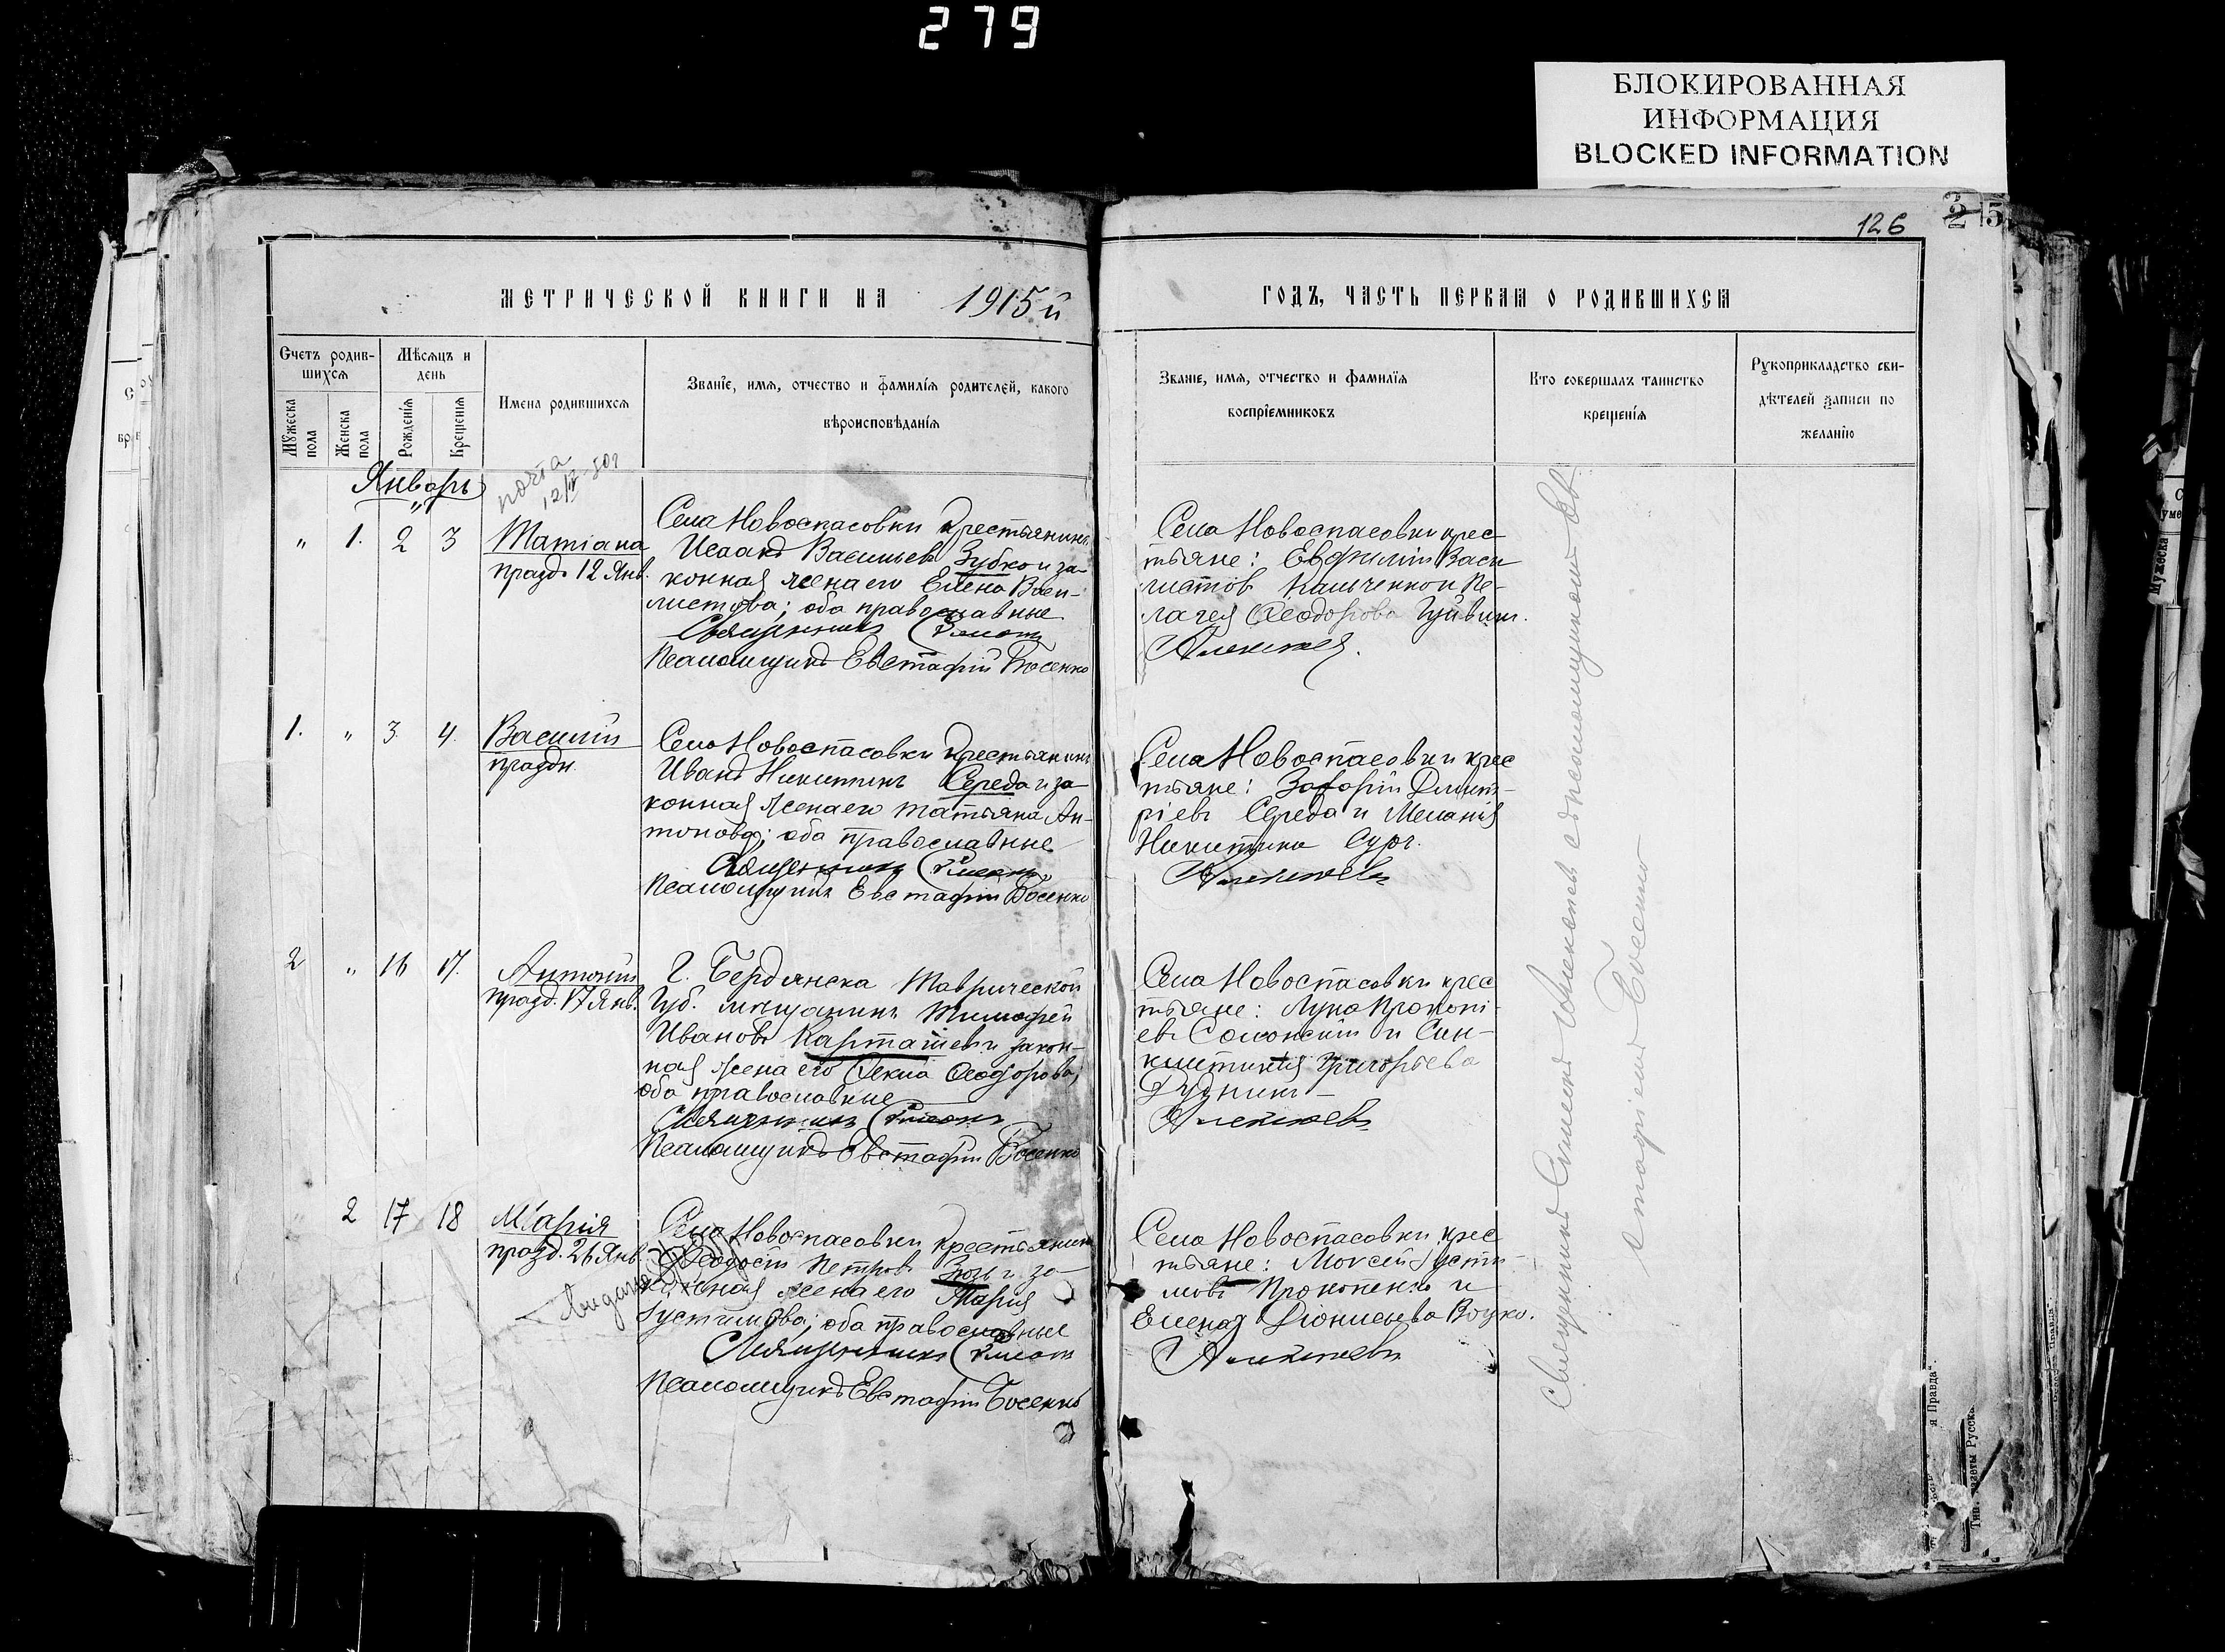 279
БЛОКИРОВАННАЯ
ИНФОРМАЦИЯ
BLOCKED INFORMATION
126
МЕТРИЧЕСКОЙ КНИГИ НА 1915й
ГОДЪ, ЧАСТЬ ПЕРВАЯ О РОДИВШИХСЯ
Счетъ родив-
шихся
Мѣсяцъ и
день
Мужеска
пола
Женска
пола
Рожденія
Крещенія
Имена родившихся
Званіе, имя, отчество и фамилія родителей, какого
вѣроисповѣданія
Званіе, имя, отчество и фамилія
воспріемниковъ
Кто совершалъ таинство
крещенія
Рукоприкладство сви-
дѣтелей записи по
желанію
Январь
" 1. 2 3
Татіана
празд. 12 Янв.
Села Новоспасовки крестьянинъ
Исаакъ Васильевъ Зубко и за-
конная жена его Елена Васи-
листова; оба православные
Священникъ
Псаломщикъ Евстафій Босенко
Села Новоспасовки крес
тьяне: Евфимій Васи
листовъ и Пе-
лагея Ѳеодорова
1. " 3 4.
Василій
праздн.
Села Новоспасовки крестьянинъ
Иванъ Никитинъ Середа и за-
конная жена его Татьяна Ан-
тонова; оба православные
Священникъ
Псаломщикъ Евстафій Босенко
Села Новоспасовки крес
тьяне: Захарій Димит-
ріевъ Середа и Меланія
Никитина
2 " 16 17.
Антоній
празд. 17 Янв.
Г. Бердянска Таврической
Губ. мѣщанинъ Тимофей
Ивановъ Карташевъ и закон-
ная жена его Ѳекла Ѳеодорова;
оба православные
Священникъ
Псаломщикъ Евстафій Босенко
Села Новоспасовки крес
тьяне: Лука Прокопі-
евъ и Син-
клитикія Григорьева
Рудникъ
2 17 18
Марія
празд. 26 Янв.
Села Новоспасовки крестьянинъ
Ѳеодосій Петровъ и за-
конная жена его Марія
Іустимова; оба православные
Священникъ
Псаломщикъ Евстафій Босенко
Села Новоспасовки крес
тьяне: Моисей Іусти-
мовъ Прокопенко и
Елена Діонисьева